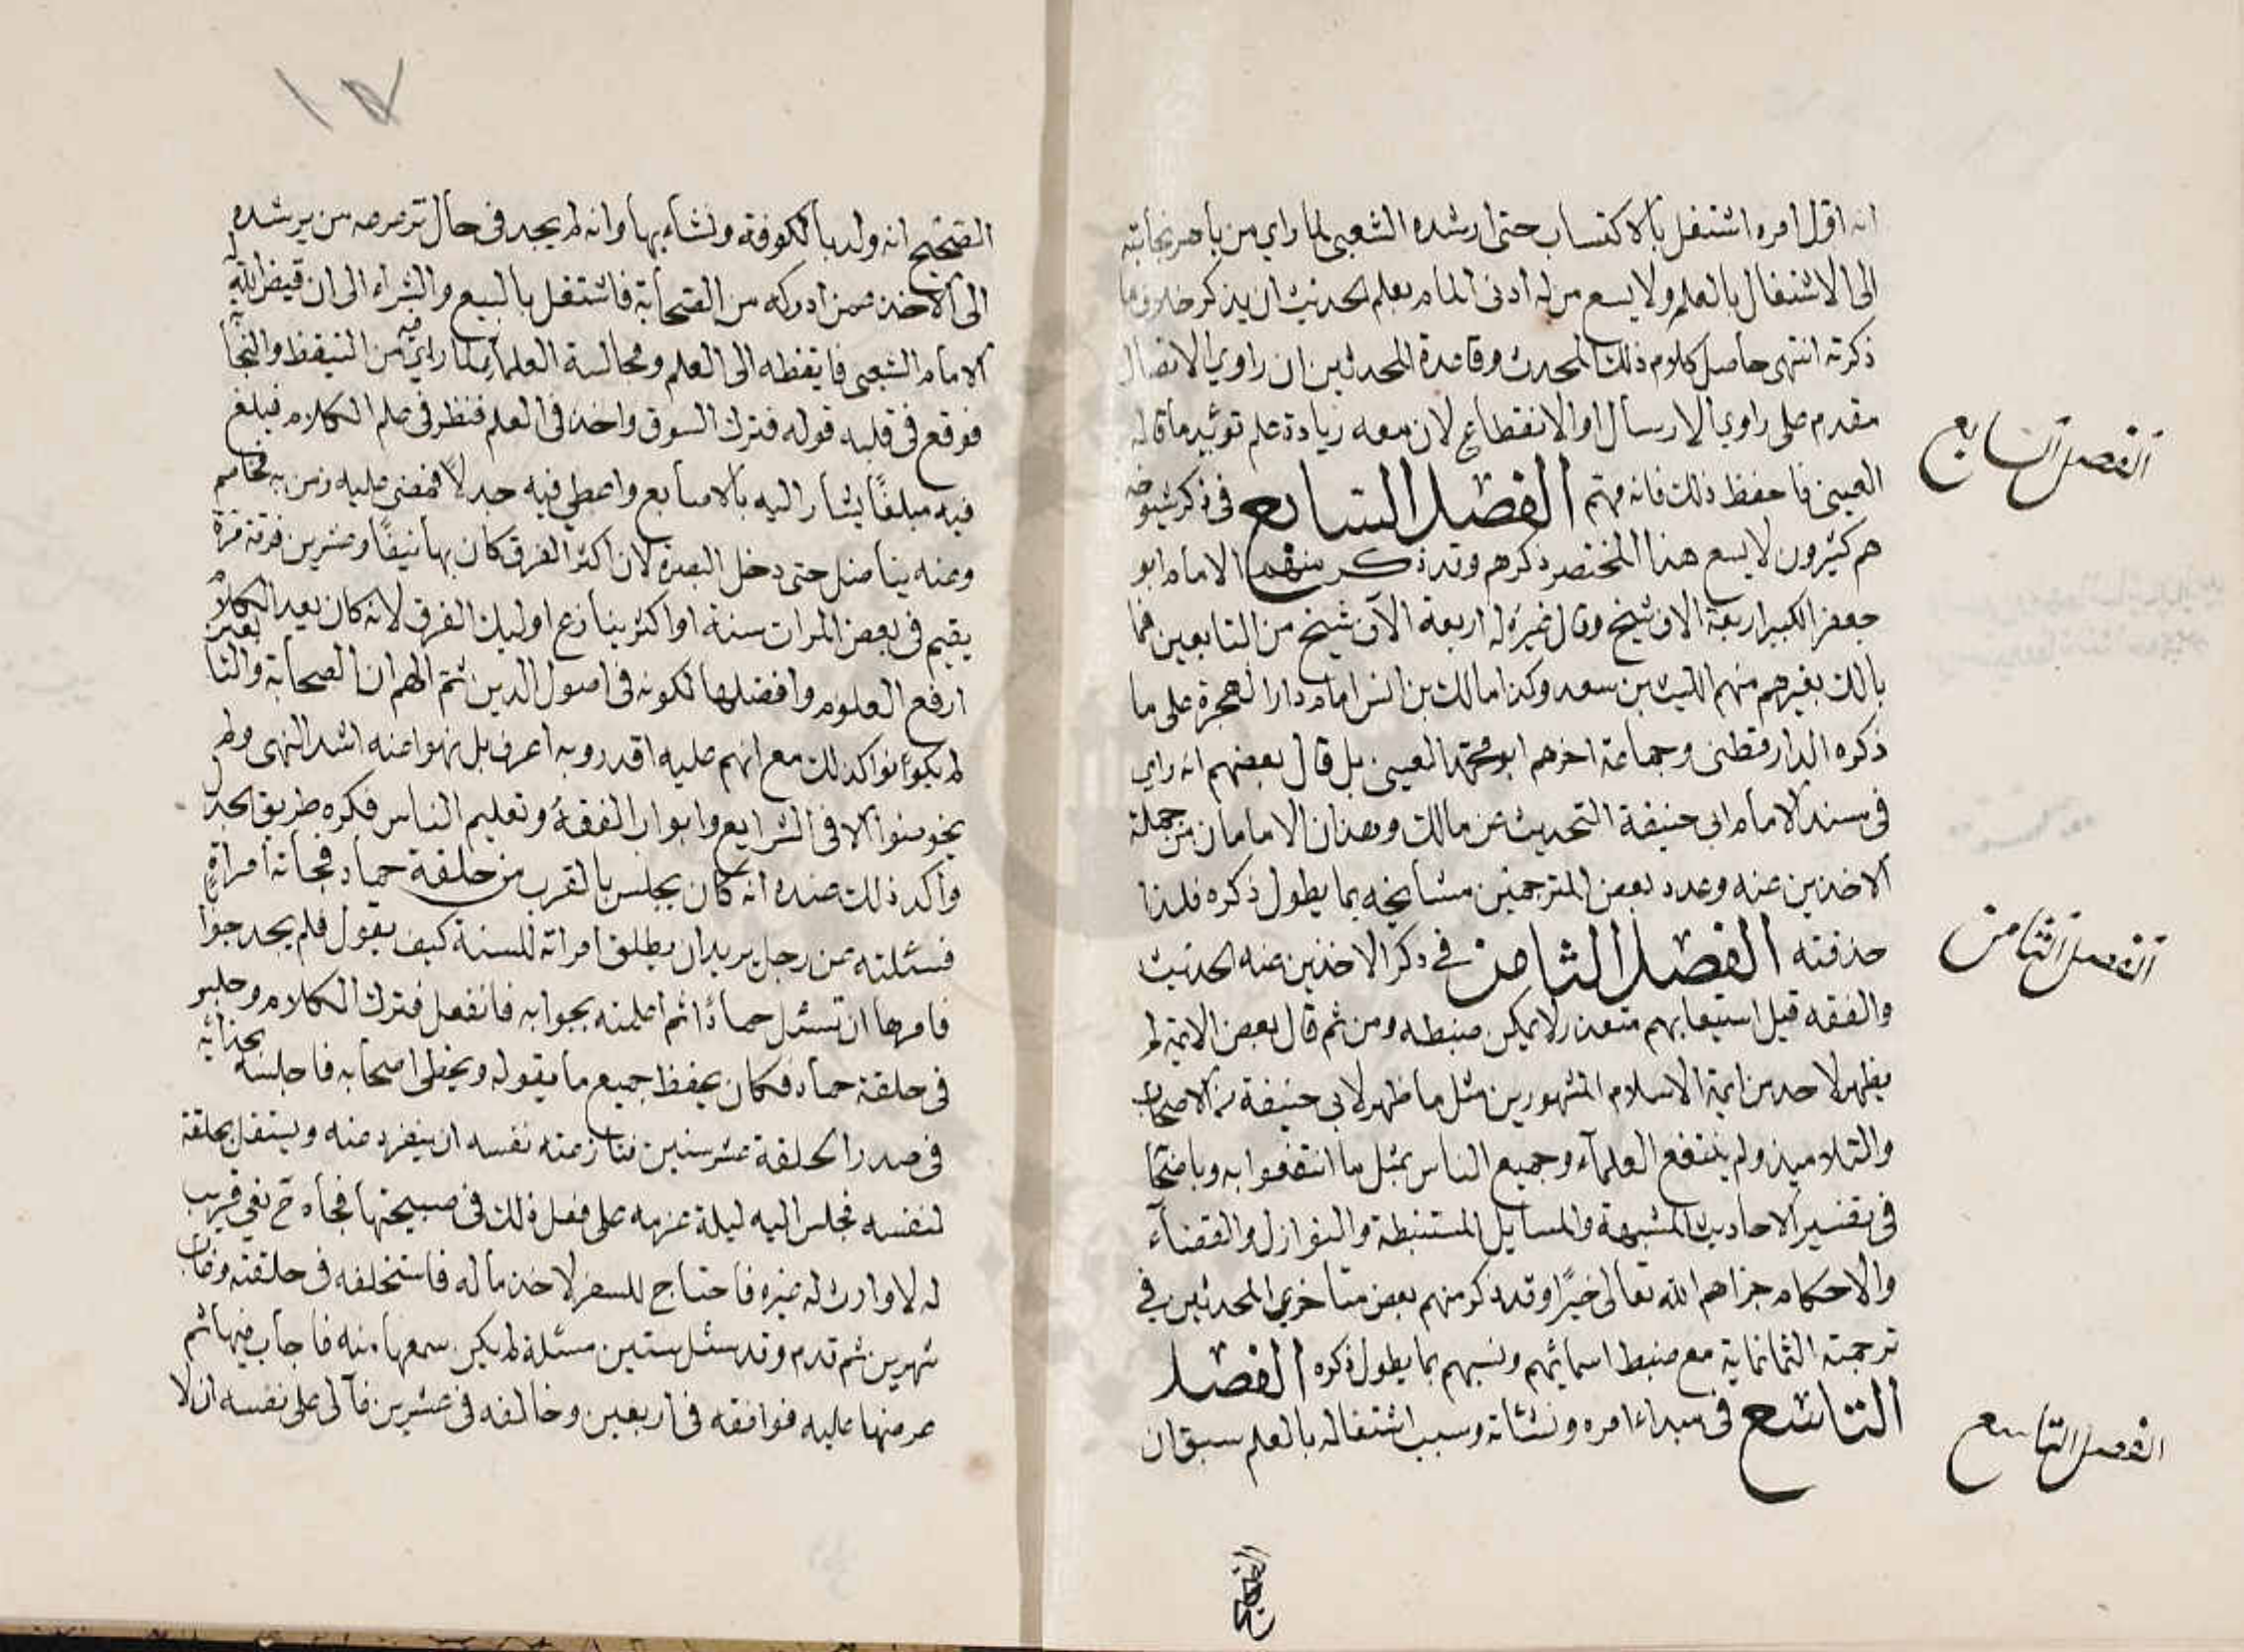 انه اول امره اشتغل بالاكتساب حتى ارشده الشعبي لما راي من باهر نجابته
الى الاشتغال بالعلم ولا يسع من له ادنى المام بعلم الحديث ان يذكر خلاف ما
ذكرته انتهى حاصل كلام ذلك المحدث وقاعدة المحدثين ان راوي الاتصال
مقدم على راوي الارسال او الانقطاع لان معه زيادة علم توئيد ما قاله
العيني فاحفظ ذلك فانه مهتم الفصل السابع في ذكر شيوخه
هم كثيرون لا يسع هذا المختصر ذكرهم وقد ذكر منهم الامام ابو
جعفر الكبير اربعة الاف شيخ وقال غيره له اربعة الاف شيخ من التابعين فما
بالك بغيرهم منهم الليث بن سعد وكذا مالك بن انس امام دار الهجرة على ما
ذكره الدارقطني وجماعة اخرهم ابو محمد العيني بل قال بعضهم انه راي
في مسند الامام ابي حنيفة التحديث عن مالك وهذان الامامان من جملة
الاخذين عنه وعدد بعض المترجمين مشايخه بما يطول ذكره فلذا
حذفته الفصل الثامن في ذكر الاخذين عنه الحديث
والفقه قيل استيعابهم متعذر لا يمكن ضبطه ومن ثم قال بعض الائمة لم
يظهر لاحد من ائمة الاسلام المشهورين مثل ما ظهر لابي حنيفة من الاصحاب
والتلاميذ ولم ينتفع العلمآء وجميع الناس بمثل ما انتفعوا به وباصحا
في تفسير الاحاديث المشبهة والمسايل المستنبطة والنوازل والقضآء
والاحكام جزاهم الله تعالى خيرًا وقد ذكر منهم بعض متاخري المحدثين في
ترجمته الثمانماية مع ضبط اسمائهم ونسبهم بما يطول ذكره الفصل
التاسع في مبداء امره ونشاته وسبب اشتغاله بالعلم سبق ان
الفصل السابع
الفصل الثامن
الفصل التاسع
الصحيح
١٧
الصحيح انه ولد بالكوفة ونشاء بها وانه لم يجد في حال ترعرعه من يرشده
الى الاخذ عمن ادركه من الصحابة فاشتغل بالبيع والشراء الى ان قيض الله له
الامام الشعبي فايقظه الى العلم ومجالسة العلماء لما راي فيه من التيقظ والنجابة
فوقع في قلبه قوله فترك السوق واخذ في العلم فنظر في علم الكلام فبلغ
فيه مبلغًا يشار اليه بالاصابع واعطي فيه جدلًا فمضى عليه زمن به يخاصم
وعنه يناضل حتى دخل البصرة لان اكثر الفرق كان بها نيفًا وعشرين فرقة مرة
يقيم في بعض المرات سنة او اكثر ينازع اوليك الفرق لانه كان يعد الكلام
ارفع العلوم وافضلها لكونه في اصول الدين ثم الهم ان الصحابة والتابعين
لم يكونوا كذلك مع انهم عليه اقدر وبه اعرف بل نهوا عنه اشد النهي ولم
يخوضوا الا في الشرايع وابواب الفقه وتعليم الناس فكره طريق الجدل
واكد ذلك عنده انه كان يجلس بالقرب من حلقة حماد فجاته امراة
فسئلته عن رجل يريد ان يطلق امراته للسنة كيف يقول فلم يجد جوا
فامرها ان تسئل حمادًا ثم اعلمته بجوابه فانفعل فترك الكلام وجلس
في حلقة حماد فكان يحفظ جميع ما يقوله ويخطي اصحابه فاجلسه بحذائه
في صدر الحلقة عشر سنين فنازعته نفسه ان ينفرد عنه ويستقل بحلقة
لنفسه فجلس اليه ليلة عزمه على فعل ذلك في صبيحتها فجاه ح نعي قريب
له لا وارث له غيره فاحتاج للسفر لاخذ ماله فاستخلفه في حلقته وغاب
شهرين ثم قدم وقد سئل ستين مسئلة لم يكن سمعها منه فاجاب فيها ثم
عرضها عليه فوافقه في اربعين وخالفه في عشرين فآلى على نفسه ان لا